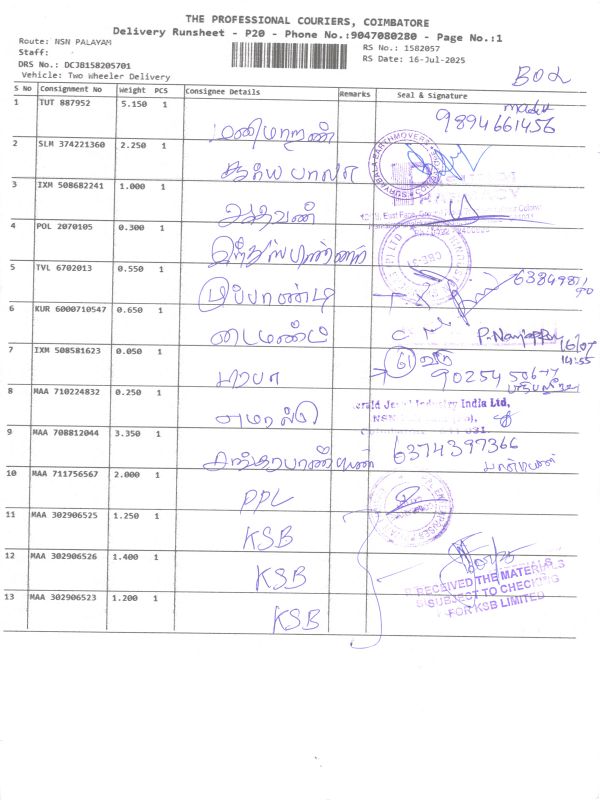 THE PROFESSIONAL COURIERS, COIMBATORE
Delivery Runsheet - P20 - Phone No.:9047080280 - Page No.:1
Route: NSN PALAYAM
RS No.: 1582057
Staff:
RS Date: 16-Jul-2025
DRS No.: DCJB158205701
Vehicle: Two Wheeler Delivery
S No Consignment No Weight PCS Consignee Details Remarks Seal & Signature
1 TUT 887952 5.150 1 மணிமாறன் 9894661456
2 SLM 374221360 2.250 1 சூர்யபாலா
3 IXM 508682241 1.000 1
4 POL 2070105 0.300 1
5 TVL 6702013 0.550 1
6 KUR 6000710547 0.650 1 டைமண்ட் 16/07
7 IXM 508581623 0.050 1 14:55
8 MAA 710224832 0.250 1 India Ltd,
9 MAA 708812044 3.350 1 சந்திரபாண்டியன் 6374397366
10 MAA 711756567 2.000 1 PPL
11 MAA 302906525 1.250 1 KSB
12 MAA 302906526 1.400 1 KSB
RECEIVED THE MATERIALS
SUBJECT TO CHECKING
FOR KSB LIMITED
13 MAA 302906523 1.200 1 KSB